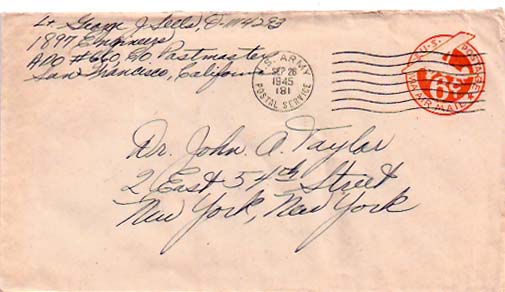 Lt. George J. Seels, O-114283
1897 Engineers
APO #660, c/o Postmaster
San Francisco, California
U.S. ARMY
SEP 26
1945
181
POSTAL SERVICE
U.S. POSTAGE
6¢
VIA AIR MAIL
Dr. John A. Taylor
2 East 54th Street
New York, New York